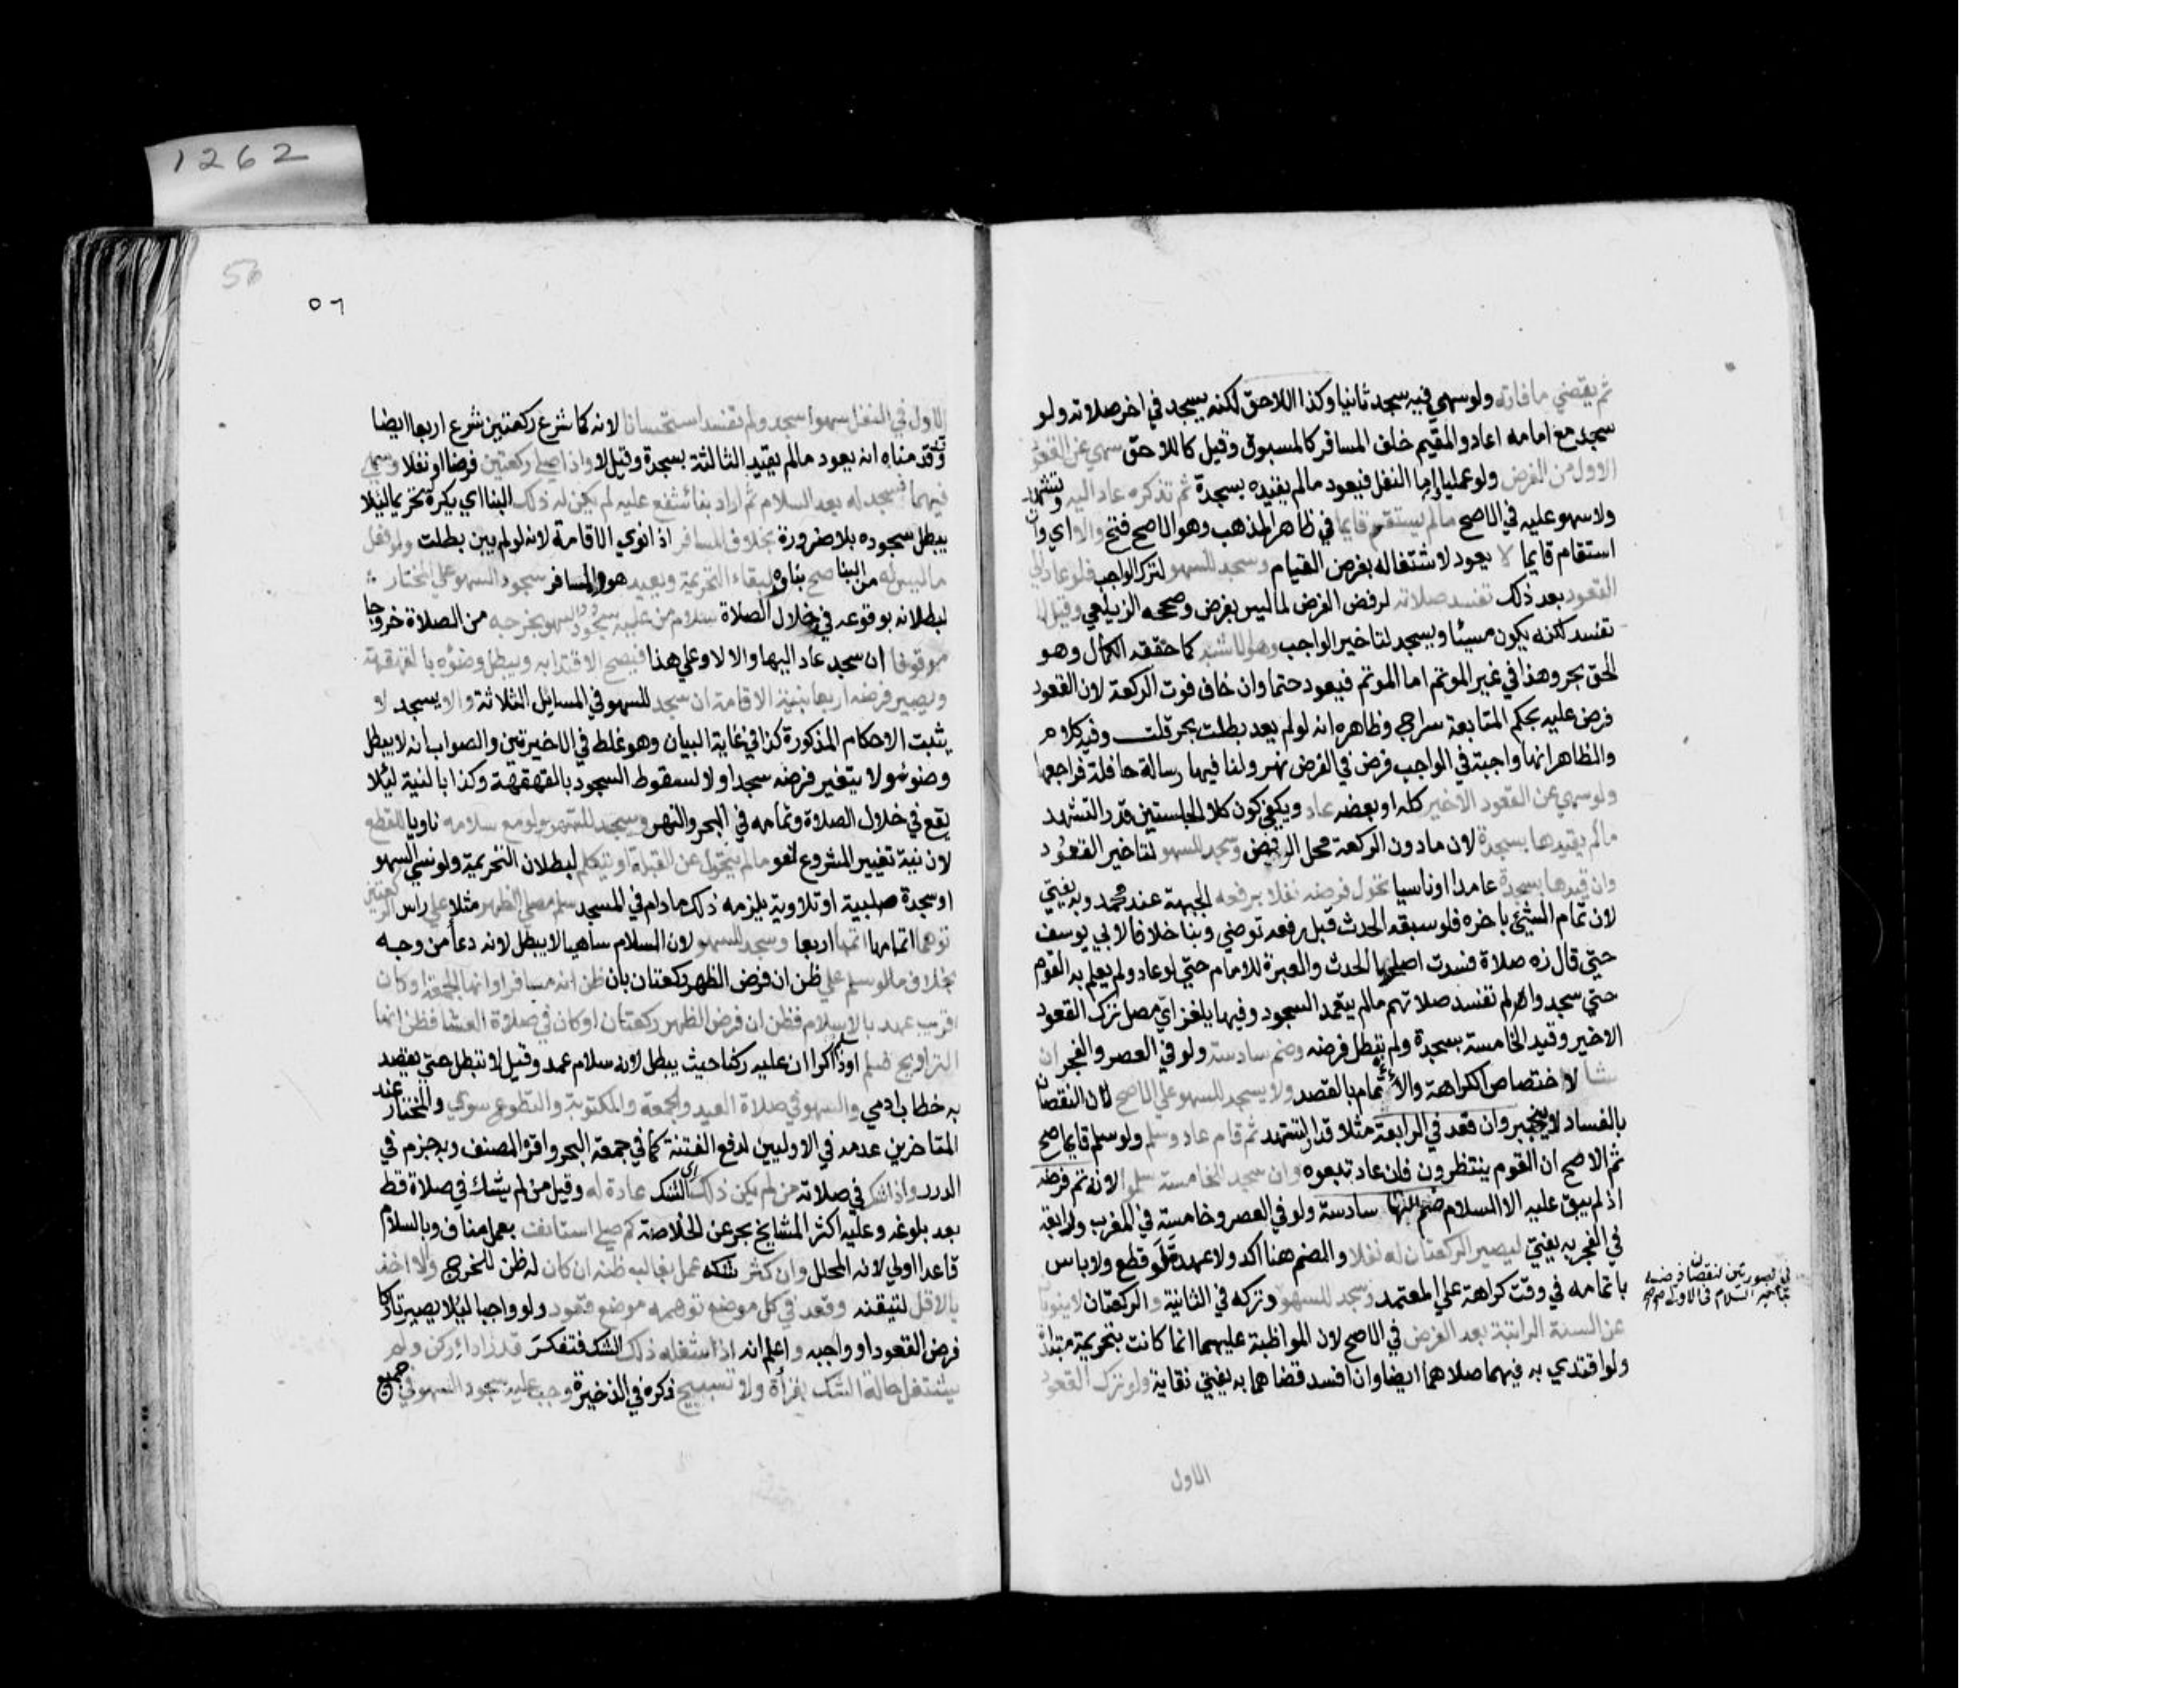 1262
ثم يقضي مافاته ولو سهي فيه سجد ثانيا وكذا اللاحق لكنه يسجد في اخر صلاته ولو
سجد مع امامه اعاد والمقيم خلف المسافر كالمسبوق وقيل كاللاحق سهي عن القعود
الاول من الفرض ولو عمليا اما النفل فيعود مالم يقيده بسجدة ثم تذكره عاد اليه وتشهد
ولا سهو عليه في الاصح مالم يستقم قايما في ظاهر المذهب وهو الاصح فتح والا اي وان
استقام قايما لا يعود لاشتغاله بفرض القيام وسجد للسهو لترك الواجب فلو عاد الي
القعود بعد ذلك تفسد صلاته لرفض الفرض لما ليس بفرض وصححه الزيلعي وقيل لا
تفسد لكنه يكون مسيئا ويسجد لتاخير الواجب وهو الاشبه كما حققه الكمال وهو
الحق بحر وهذا في غير الموتم اما الموتم فيعود حتما وان خاف فوت الركعة لان القعود
فرض عليه بحكم المتابعة سراج وظاهره انه لو لم يعد بطلت بحر قلت وفيه كلام
والظاهر انها واجبة في الواجب فرض في الفرض نهر ولنا فيها رسالة حافلة فراجعها
ولو سهي عن القعود الاخير كله او بعضه عاد ويكفي كون كلا الجلستين قدر التشهد
مالم يقيدها بسجدة لان مادون الركعة محل الرفض وسجد للسهو لتاخير القعود
وان قيدها بسجدة عامدا او ناسيا تحول فرضه نفلا برفعه الجبهة عند محمد وبه يفتي
لان تمام الشيئ باخره فلو سبقه الحدث قبل رفعه توضي وبنا خلافا لابي يوسف
حتي قال زه صلاة فسدت اصلحها الحدث والعبرة للامام حتي لو عاد ولم يعلم به القوم
حتي سجدوا لم تفسد صلاتهم مالم يتعمد السجود وفيها يلغز اي مصل ترك القعود
الاخير وقيد الخامسة بسجدة ولم يبطل فرضه وضم سادسة ولو في العصر والفجر ان
شا لاختصاص الكراهة والاتمام بالقصد ولا يسجد للسهو علي الاصح لان النقصان
بالفساد لا ينجبر وان قعد في الرابعة مثلا قدر التشهد ثم قام عاد وسلم ولو سلم قايما صح
ثم الاصح ان القوم ينتظرون فان عاد تبعوه وان سجد للخامسة سلموا لانه تم فرضه
اذ لم يبق عليه الا السلام ضم اليها سادسة ولو في العصر وخامسة في المغرب ورابعة
في الفجر به يفتي ليصير الركعتان له نفلا والضم هنا اكد ولا عهدة لو قطع ولا باس
باتمامه في وقت كراهة علي المعتمد وسجد للسهو وتركه في الثانية والركعتان لا ينوبان
عن السنة الراتبة بعد الفرض في الاصح لان المواظبة عليهما انما كانت بتحريمة مبتداة
ولو اقتدي به فيهما صلاهما ايضا وان افسد قضاهما به يفتي نقاية ولو ترك القعود
في الصورتين لنقصان فرضه
بتاخير السلام في الاولي
الاول
56
٥٦
الاول في النفل سهوا سجد ولم تفسد استحسانا لانه كما شرع ركعتين شرع اربعا ايضا
وقدمناه انه يعود مالم يقيد الثالثة بسجدة وقيل لا واذا صلي ركعتين فرضا او نفلا وسهي
فيهما فسجد له بعد السلام ثم اراد بناء شفع عليه لم يكن له ذلك البنا اي يكره تحريما ليلا
يبطل سجوده بلا ضرورة بخلاف المسافر اذا نوي الاقامة لانه لو لم يبن بطلت ولو فعل
ما ليس له من البنا صح بناوه لبقاء التحريمة ويعيد هو والمسافر سجود السهو علي المختار
لبطلانه بوقوعه في خلال الصلاة سلام من عليه سجود السهو يخرجه من الصلاة خروجا
موقوفا ان سجد عاد اليها والا لا وعلي هذا فيصح الاقتدا به ويبطل وضوءه بالقهقهة
ويصير فرضه اربعا بنية الاقامة ان سجد للسهو في المسايل الثلاثة والا يسجد لا
يثبت الاحكام المذكورة كذا في غاية البيان وهو غلط في الاخيرتين والصواب انه لا يبطل
وضوئه ولا يتغير فرضه سجد او لا لسقوط السجود بالقهقهة وكذا بالنية ليئلا
يقع في خلال الصلاة وتمامه في البحر والنهر ويسجد للسهو ولو مع سلامه ناويا للقطع
لان نية تغيير المشروع لغو مالم يتحول عن القبلة او يتكلم لبطلان التحريمة ولو نسي السهو
او سجدة صلبية او تلاوية يلزمه ذلك مادام في المسجد سلم مصلي الظهر مثلا علي راس الركعتين
توهما اتمامها اتمها اربعا وسجد للسهو لان السلام ساهيا لا يبطل لانه دعا من وجه
بخلاف مالو سلم علي ظن ان فرض الظهر ركعتان بان ظن انه مسافر او انها الجمعة او كان
قريب عهد بالاسلام فظن ان فرض الظهر ركعتان او كان في صلاة العشا فظن انها
التراويح فسلم او ذاكرا ان عليه ركنا حيث يبطل لانه سلام عمد وقيل لا تبطل حتي يقصد
به خطاب ادمي والسهو في صلاة العيد والجمعة والمكتوبة والتطوع سوي والمختار عند
المتاخرين عدمه في الاوليين لدفع الفتنة كما في جمعة البحر واقره المصنف وبه جزم في
الدرر واذا شك في صلاته من لم يكن ذلك اي الشك عادة له وقيل من لم يشك في صلاة قط
بعد بلوغه وعليه اكثر المشايخ بحر عن الخلاصة كم صلي استانف بعمل مناف وبالسلام
قاعدا اولي لانه المحلل وان كثر شكه عمل بغالب ظنه ان كان له ظن للحرج والا اخذ
بالاقل لتيقنه وقعد في كل موضع توهمه موضع قعود ولو واجبا ليئلا يصير تاركا
فرض القعود او واجبه واعلم انه اذا شغله ذلك الشك فتفكر قدر اداء ركن ولم
يشتغل حالة الشك بقراة ولا تسبيح ذكره في الذخيرة وجب عليه سجود السهو في جميع